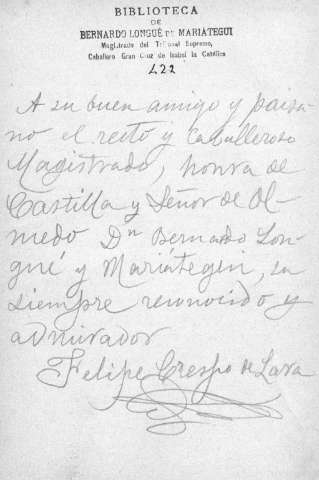 BIBLIOTECA
DE
BERNARDO LONGUÉ DE MARIATEGUI
Magistrado del Tribunal Supremo,
Caballero Gran Cruz de Isabel la Católica
422
A su buen amigo y paisa-
no el recto y caballeroso
Magistrado, honra de
Castilla y Señor de Ol-
medo Dn Bernardo Lon-
gué y Mariátegui, su
siempre reconocido y
admirador
Felipe Crespo de Lara